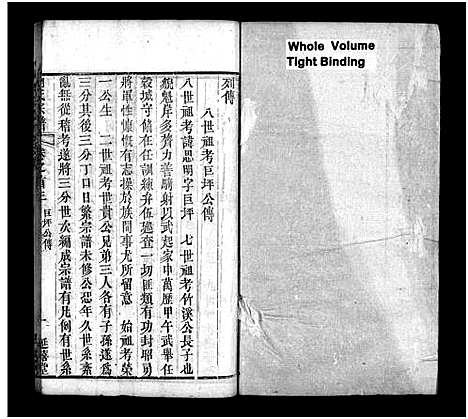 Whole Volume
Tight Binding
列傳
八世祖考巨坪公傳
八世祖考諱思明字巨坪 七世祖考竹溪公長子也
貌魁岸多膂力善騎射以武起家中萬歷甲午武舉任
穀城守備在任訓練弁伍嚴查一切匪類有功封昭勇
將軍性慷慨有志操於族間事尤所留意 始祖考榮
一公生 二世祖考世貴公兄弟三人各有子孫遂爲
三分其後三分丁口日繁宗譜未修公恐年久世系紊
亂無從稽考遂將三分世次編成宗譜有凡例有世系
巨坪公傳
一
延喜堂